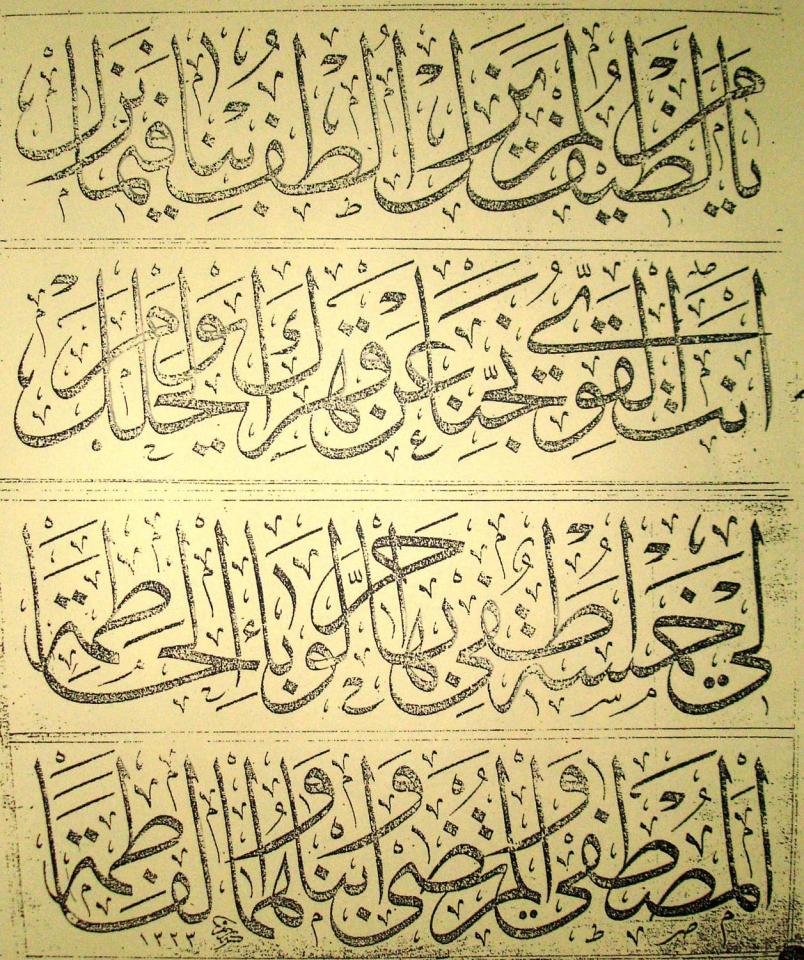 يا من لطيف لم يزل الطف بنا فيما نزل
انت القويّ نجّنا عن قهرك يوم الخلل
لي خمسة اطفي بها حرّ الوباء الحاطمة
المصطفى والمرتضى وابناهما والفاطمة
١٣٢٣